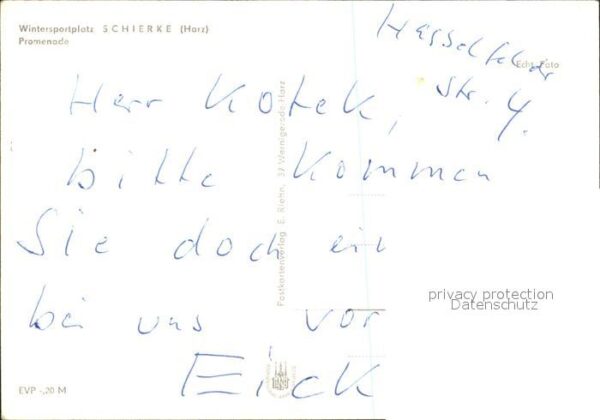 Wintersportplatz SCHIERKE (Harz)
Promenade
Hasselfelder
Str. 4.
Echt Foto
Herr Kotek,
bitte Kommen
Sie doch ein
bei uns vor
Eick
Postkartenverlag E. Riehn, 37 Wernigerode-Harz
privacy protection
Datenschutz
EVP -,20 M